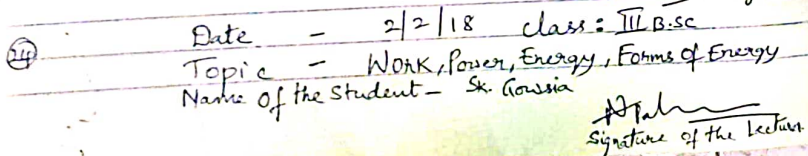 24
Date - 2/2/18 class: III B.sc
Topic - Work, Power, Energy, Forms of Energy
Name of the Student - Sk. Gowsia
Signature of the Lecturer